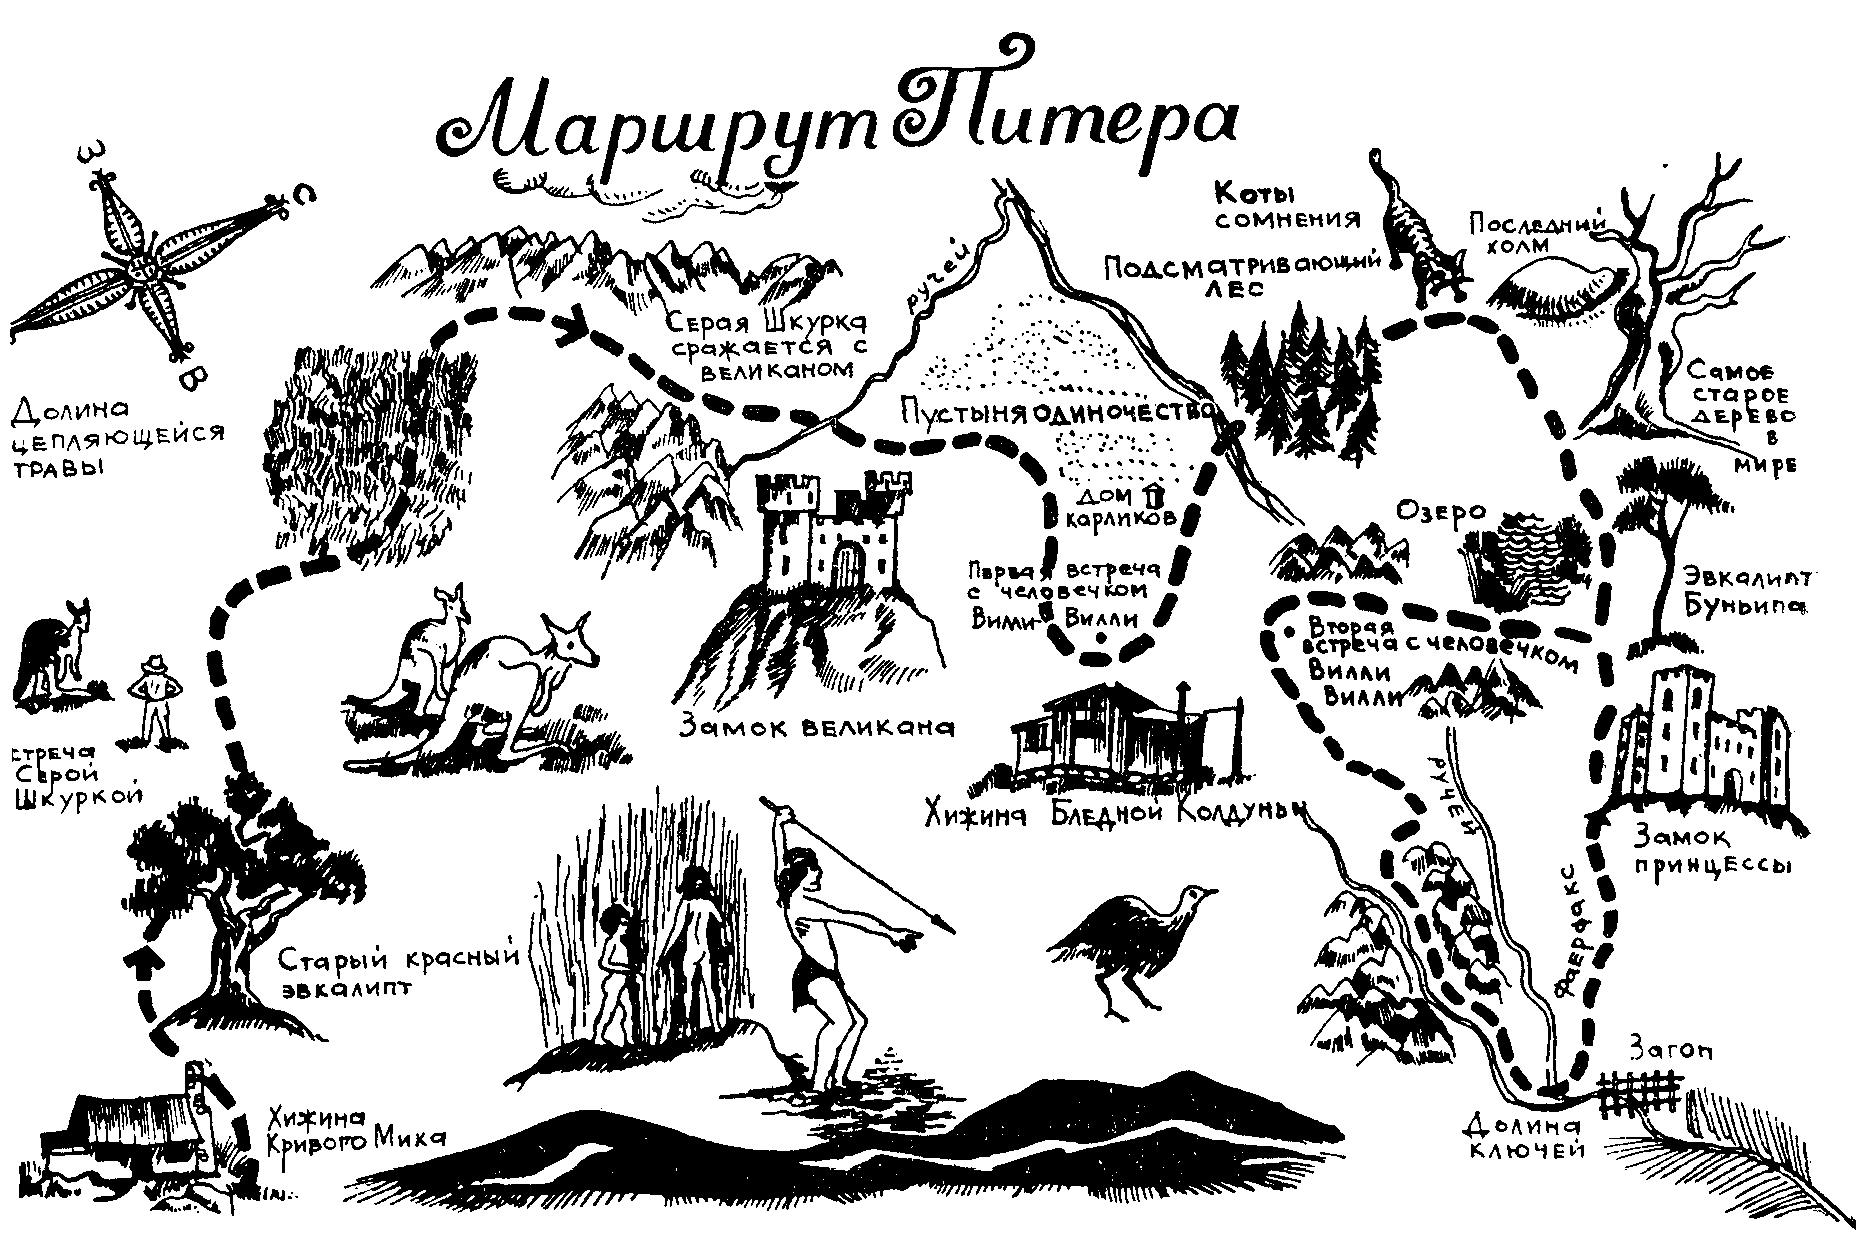 Маршрут Питера
З
С
В
Долина
цепляющейся
травы
Серая Шкурка
сражается с
великаном
ручей
Коты
сомнения
Подсматривающий
лес
Последний
холм
Самое
старое
дерево
в
мире
Пустыня одиночества
Дом
карликов
Первая встреча
с человечком
Вилли
Вилли
Озеро
Эвкалипт
Буньипа
Вторая
встреча с человечком
Вилли
Вилли
стреча
Серой
Шкуркой
Замок великана
Хижина Бледной Колдуньи
ручей
Замок
принцессы
Фаерфакс
Старый красный
эвкалипт
Хижина
Кривого Мика
Загон
Долина
ключей